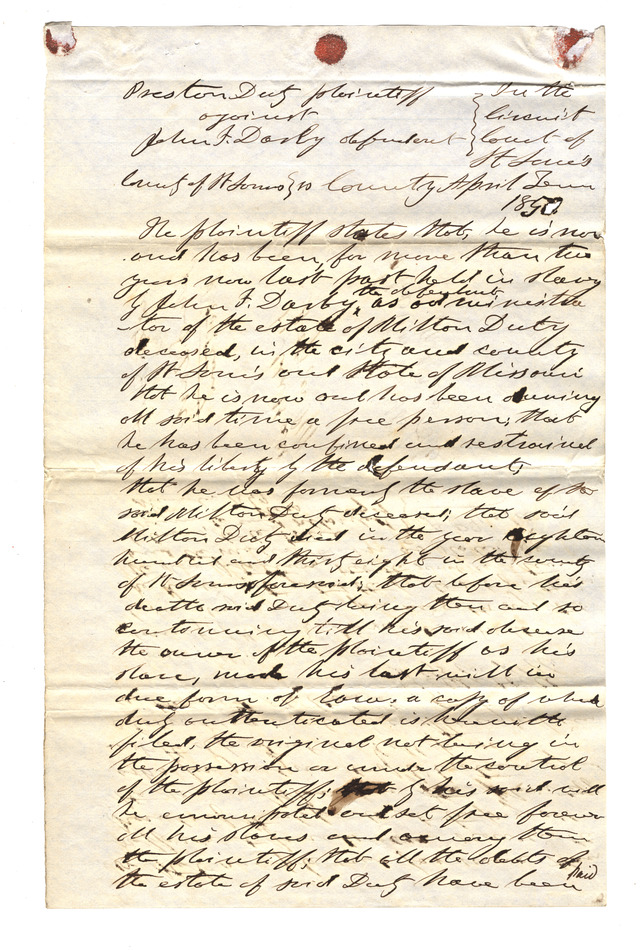 Preston Duty plaintiff } In the
against Circuit
John F. Darby defendant Court of
St Louis
County of St Louis } ss County April Term
1850
The plaintiff states that, he is now
and has been, for more than two
years now last past held in slavery
by John F. Darby, the defendant, as administra
-tor of the estate of Milton Duty
deceased, in the city and county
of St Louis and State of Missouri
that he is now and has been during
all said time a free person; that
he has been confined and restrained
of his liberty by the defendant;
that he was formerly the slave of
said Milton Duty deceased; that said
Milton Duty died in the year eighteen
hundred and thirty eight in the county
of St Louis aforesaid; that before his
death said Duty being then and so
continuing till his said decease
the owner of the plaintiff as his
slave, made his last will in
due form of law, a copy of which
duly authenticated is herewith
filed, the original not being in
the possession or under the control
of the plaintiff; that by his said will
he emancipated and set free forever
all his slaves and among them
the plaintiff; that all the debts of
the estate of said Duty have been paid